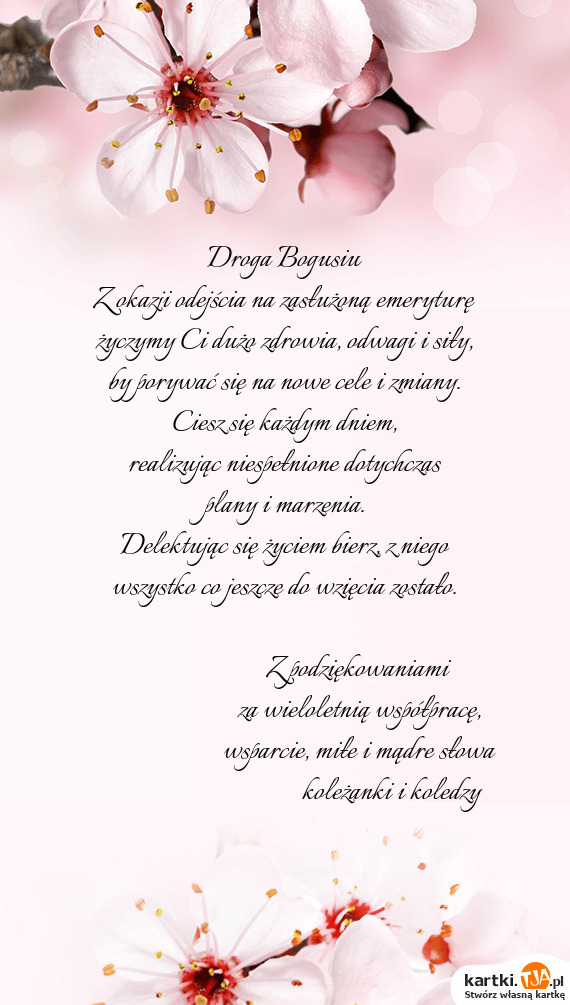 Droga Bogusiu
Z okazji odejścia na zasłużoną emeryturę
życzymy Ci dużo zdrowia, odwagi i siły,
by porywać się na nowe cele i zmiany.
Ciesz się każdym dniem,
realizując niespełnione dotychczas
plany i marzenia.
Delektując się życiem bierz z niego
wszystko co jeszcze do wzięcia zostało.
Z podziękowaniami
za wieloletnią współpracę,
wsparcie, miłe i mądre słowa
koleżanki i koledzy
kartki.TJA.pl
Stwórz własną kartkę